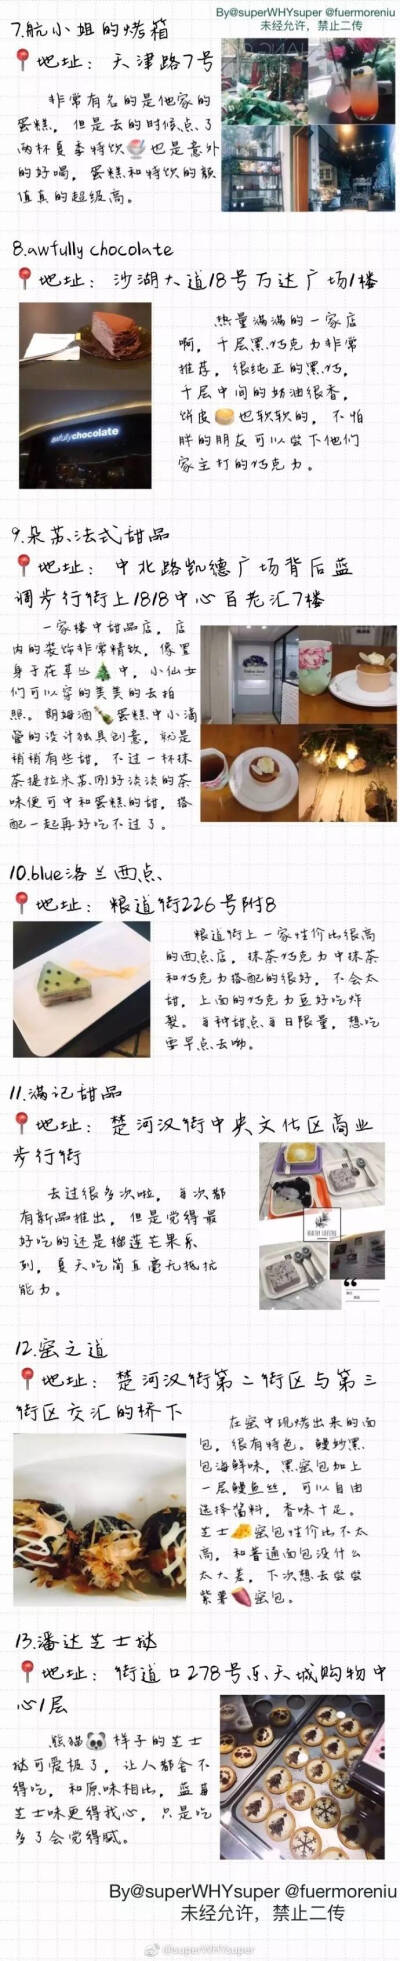 By@superWHYsuper @fuermoreniu
未经允许，禁止二传
7.航小姐的烤箱
地址：天津路7号
非常有名的是他家的
蛋糕，但是去的时候点了
两杯夏季特饮也是意外
的好喝，蛋糕和特饮的颜
值真的超级高。
8.awfully chocolate
地址：沙湖大道18号万达广场1楼
热量满满的一家店
啊，千层黑巧克力非常
推荐，很纯正的黑巧，
千层中间的奶油很香，
饼皮也软软的，不怕
胖的朋友可以尝下他们
家主打的巧克力。
awfullychocolate
9.朵苏法式甜品
地址：中北路凯德广场背后蓝
调步行街上1818中心百老汇7楼
一家楼中甜品店，店
内的装饰非常精致，像置
身于花草中，小仙女
们可以穿的美美的去拍
照。朗姆酒蛋糕中小滴
管的设计独具创意，就是
稍稍有些甜，不过一杯抹
茶提拉米苏刚好淡淡的茶
味便可中和蛋糕的甜，搭
配一起再好吃不过了。
10.blue洛兰西点
地址：粮道街226号附8
粮道街上一家性价比很高
的西点店，抹茶巧克力中抹茶
和巧克力搭配的很好，不会太
甜，上面的巧克力豆好吃炸
裂。每种甜点每日限量，想吃
要早点去呦。
11.满记甜品
地址：楚河汉街中央文化区商业
步行街
去过很多次啦，每次都
有新品推出，但是觉得最
好吃的还是榴莲芒果系
列，夏天吃简直毫无抵抗
能力。
12.蜜之道
地址：楚河汉街第二街区与第三
街区交汇的桥下
在蜜中现烤出来的面
包，很有特色。鳗鱼黑
包海鲜味，黑蜜包加上
一层鳗鱼丝，可以自由
选择酱料，香味十足。
芝士蜜包性价比不太
高，和普通面包没什么
太大差，下次想去尝尝
紫薯蜜包。
13.潘达芝士挞
地址：街道口278号乐天城购物中
心1层
熊猫样子的芝士
挞可爱极了，让人都舍不
得吃，和原味相比，蓝莓
芝士味更得我心，只是吃
多了会觉得腻。
By@superWHYsuper @fuermoreniu
未经允许，禁止二传
@superWHYsuper